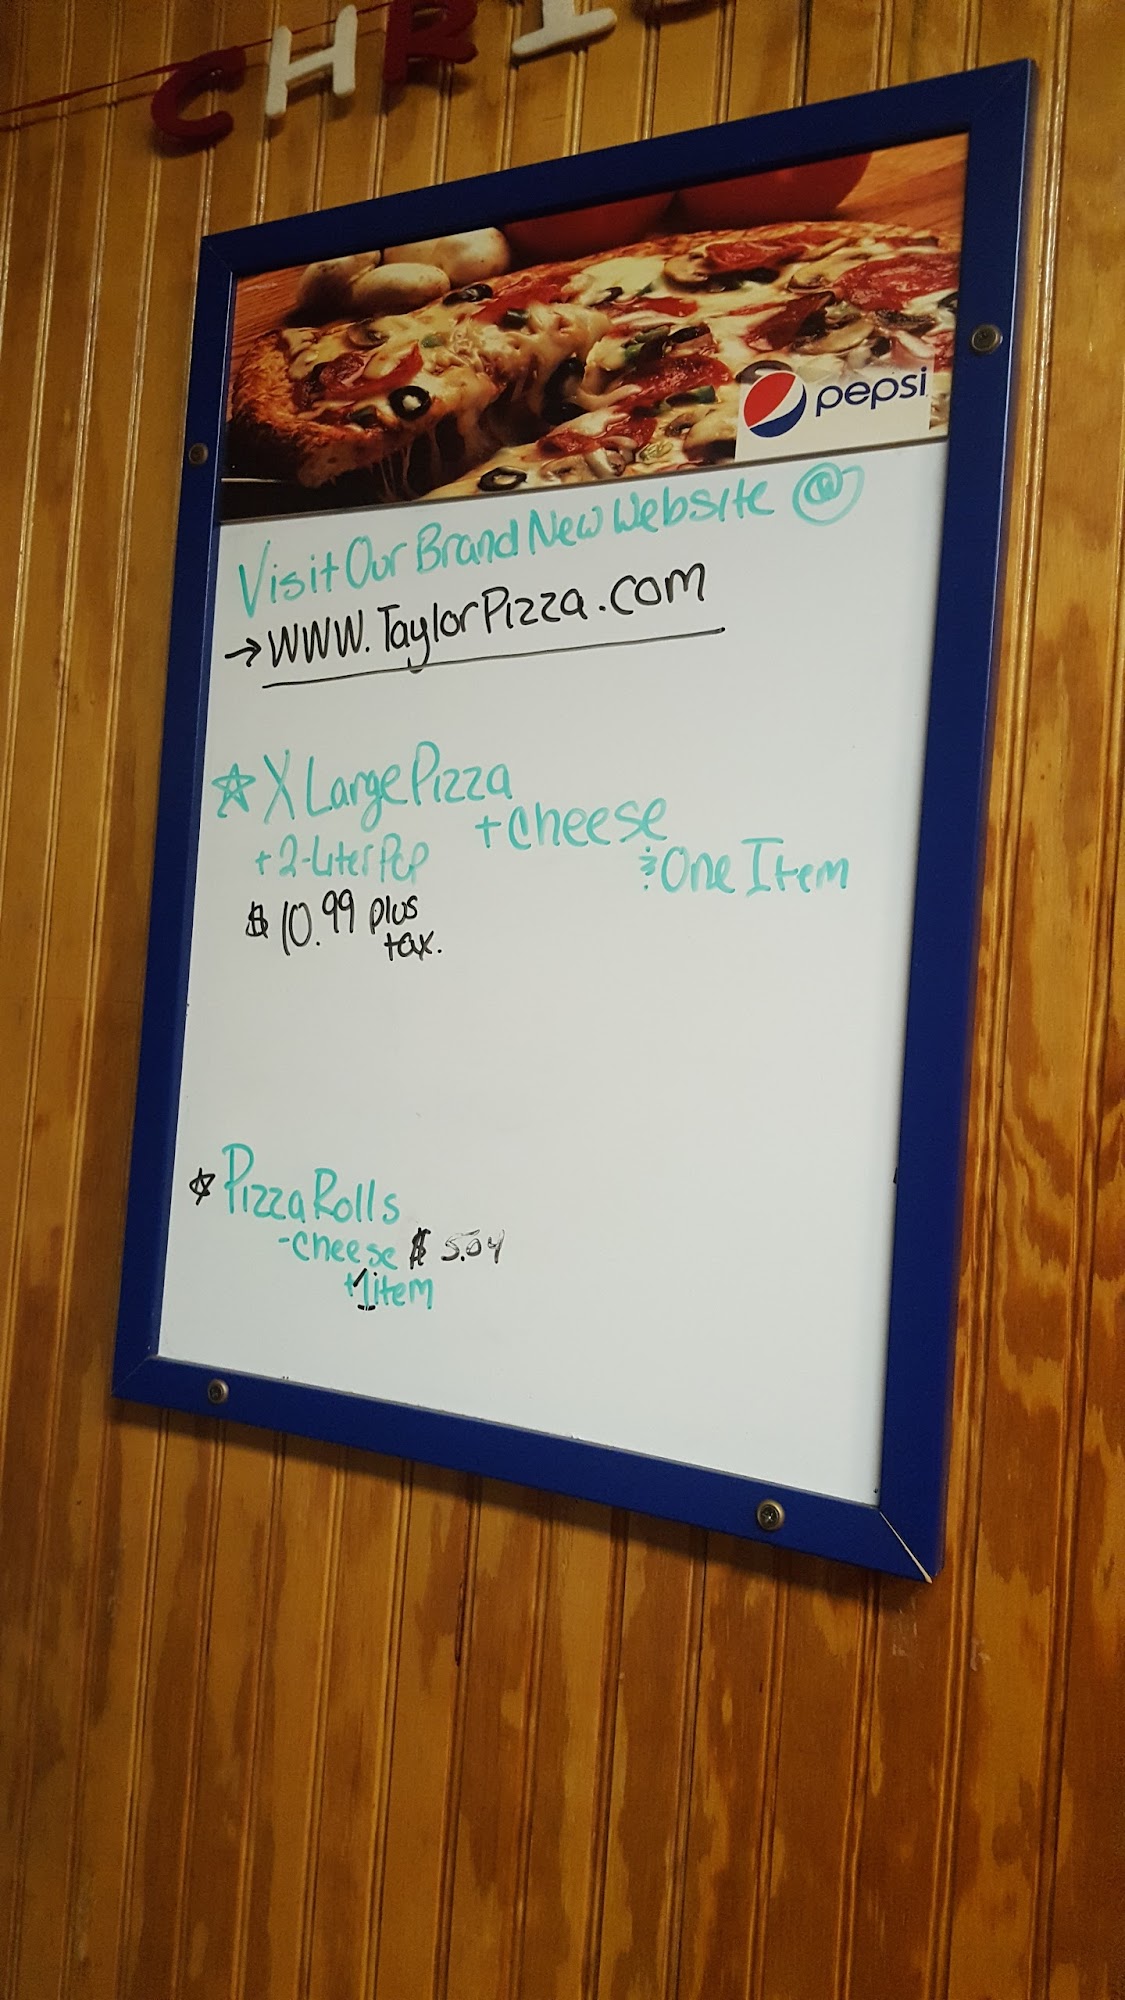 CHRI
pepsi
Visit Our Brand New Website @
→ WWW.TaylorPizza.com
☆ X Large Pizza
+ Cheese
& One Item
+ 2-Liter Pop
$10.99 plus
tax.
☆ Pizza Rolls
-cheese $ 5.04
+1 item